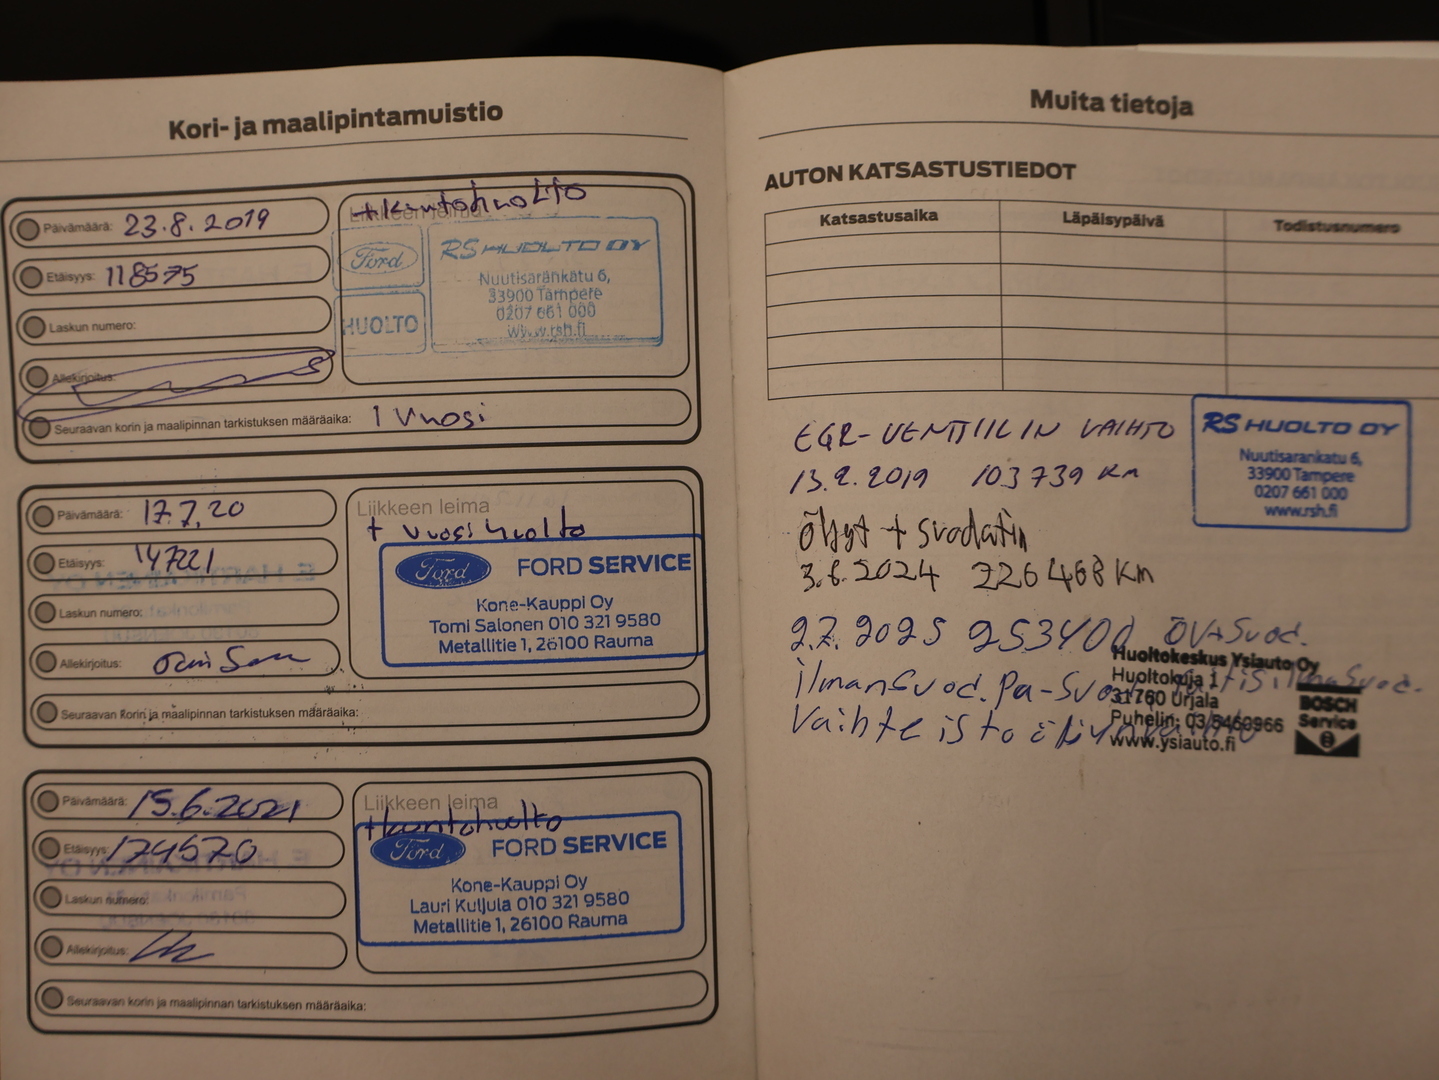 Kori- ja maalipintamuistio
+kuntohuolto
Päivämäärä: 23.8.2019
Liikkeen leima
Etäisyys: 118575
Ford
HUOLTO
RS HUOLTO OY
Nuutisarankatu 6,
33900 Tampere
0207 661 000
www.rsh.fi
Laskun numero:
Allekirjoitus:
Seuraavan korin ja maalipinnan tarkistuksen määräaika: 1 vuosi
Päivämäärä: 17.7.20
Liikkeen leima
+ vuosihuolto
Etäisyys: 147221
Ford FORD SERVICE
Kone-Kauppi Oy
Tomi Salonen 010 321 9580
Metallitie 1, 26100 Rauma
Laskun numero:
Allekirjoitus:
Seuraavan korin ja maalipinnan tarkistuksen määräaika:
Päivämäärä: 15.6.2021
Liikkeen leima
+kuntohuolto
Etäisyys: 174570
Ford FORD SERVICE
Kone-Kauppi Oy
Lauri Kuljula 010 321 9580
Metallitie 1, 26100 Rauma
Laskun numero:
Allekirjoitus:
Seuraavan korin ja maalipinnan tarkistuksen määräaika:
Muita tietoja
AUTON KATSASTUSTIEDOT
Katsastusaika Läpäisypäivä Todistusnumero
EGR-VENTTIILIN VAIHTO
13.2.2019 103739 km
RS HUOLTO OY
Nuutisarankatu 6,
33900 Tampere
0207 661 000
www.rsh.fi
Öljyt + suodatin
3.6.2024 226468 km
2.7.2025 253400 ÖV+Suod.
ilmansuod. Pa-Suod.
Vaihteisto öljynvaihto
Huoltokeskus Ysiauto Oy
Huoltokuja 1
31760 Urjala
Puhelin: 03 5460966
www.ysiauto.fi
BOSCH
Service